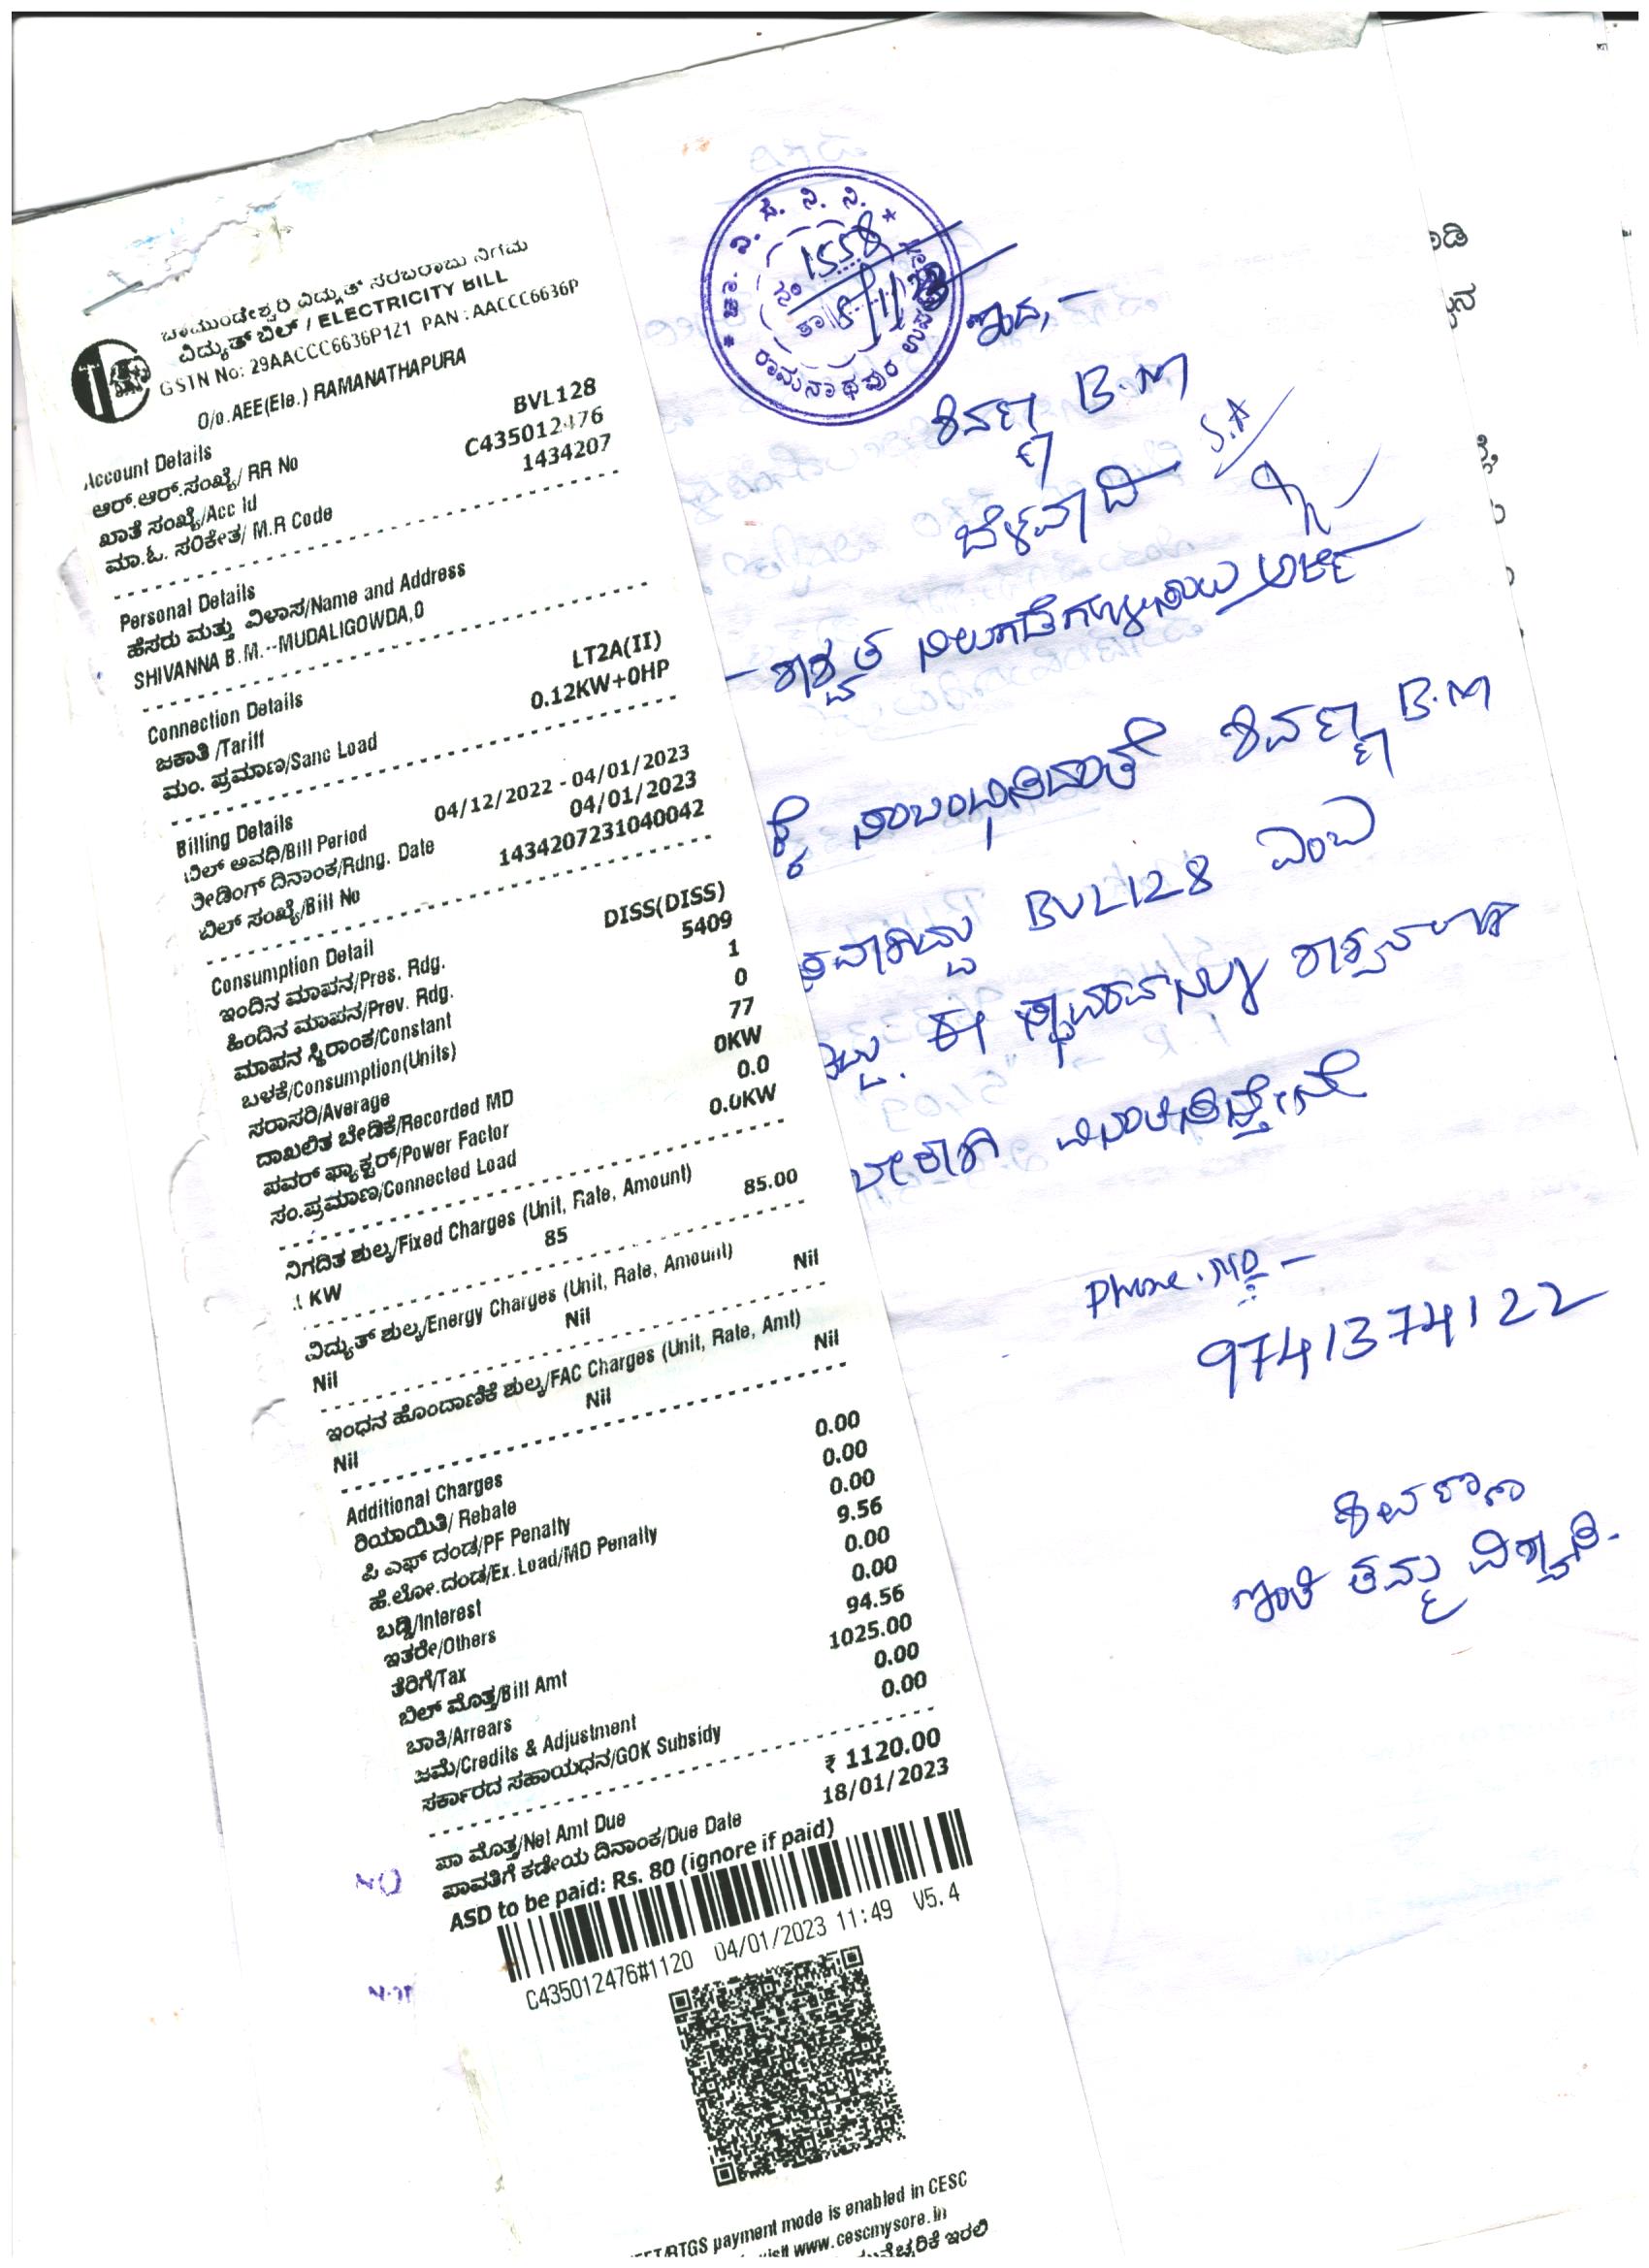 ಚಾಮುಂಡೇಶ್ವರಿ ವಿದ್ಯುತ್ ಸರಬರಾಜು ನಿಗಮ
ವಿದ್ಯುತ್ ಬಿಲ್ / ELECTRICITY BILL
GSTN No: 29AACCC6636P1Z1 PAN : AACCC6636P
O/o.AEE(Ele.) RAMANATHAPURA
Account Details
ಆರ್.ಆರ್.ಸಂಖ್ಯೆ/ RR No BVL128
ಖಾತೆ ಸಂಖ್ಯೆ/Acc Id C435012476
ಮಾ.ಓ. ಸಂಕೇತ/ M.R Code 1434207
Personal Details
ಹೆಸರು ಮತ್ತು ವಿಳಾಸ/Name and Address
SHIVANNA B.M.--MUDALIGOWDA,0
Connection Details
ಜಕಾತಿ /Tariff LT2A(II)
ಮಂ. ಪ್ರಮಾಣ/Sanc Load 0.12KW+0HP
Billing Details
ಬಿಲ್ ಅವಧಿ/Bill Period 04/12/2022 - 04/01/2023
ರೀಡಿಂಗ್ ದಿನಾಂಕ/Rdng. Date 04/01/2023
ಬಿಲ್ ಸಂಖ್ಯೆ/Bill No 1434207231040042
Consumption Detail
ಇಂದಿನ ಮಾಪನ/Pres. Rdg. DISS(DISS)
ಹಿಂದಿನ ಮಾಪನ/Prev. Rdg. 5409
ಮಾಪನ ಸ್ಥಿರಾಂಕ/Constant 1
ಬಳಕೆ/Consumption(Units) 0
ಸರಾಸರಿ/Average 77
ದಾಖಲಿತ ಬೇಡಿಕೆ/Recorded MD 0KW
ಪವರ್ ಫ್ಯಾಕ್ಟರ್/Power Factor 0.0
ಸಂ.ಪ್ರಮಾಣ/Connected Load 0.0KW
ನಿಗದಿತ ಶುಲ್ಕ/Fixed Charges (Unit, Rate, Amount)
1 KW 85 85.00
ವಿದ್ಯುತ್ ಶುಲ್ಕ/Energy Charges (Unit, Rate, Amount)
Nil Nil Nil
ಇಂಧನ ಹೊಂದಾಣಿಕೆ ಶುಲ್ಕ/FAC Charges (Unit, Rate, Amt)
Nil Nil Nil
Additional Charges
ರಿಯಾಯಿತಿ/ Rebate 0.00
ಪಿ ಎಫ್ ದಂಡ/PF Penalty 0.00
ಹೆ.ಲೋ.ದಂಡ/Ex.Load/MD Penalty 0.00
ಬಡ್ಡಿ/Interest 9.56
ಇತರೇ/Others 0.00
ತೆರಿಗೆ/Tax 0.00
ಬಿಲ್ ಮೊತ್ತ/Bill Amt 94.56
ಬಾಕಿ/Arrears 1025.00
ಜಮೆ/Credits & Adjustment 0.00
ಸರ್ಕಾರದ ಸಹಾಯಧನ/GOK Subsidy 0.00
ಪಾ ಮೊತ್ತ/Net Amt Due ₹ 1120.00
ಪಾವತಿಗೆ ಕಡೇಯ ದಿನಾಂಕ/Due Date 18/01/2023
ASD to be paid: Rs. 80 (ignore if paid)
C435012476#1120 04/01/2023 11:49 V5.4
RTGS payment mode is enabled in CESC
www.cescmysore.in
ಇರಲಿ
ರಾಮನಾಥಪುರ ಉಪ
1558
ಇಂದ,-
ಶಿವಣ್ಣ B.M
ಬೆಳವಾಡಿ
S.A
- ಶಾಶ್ವತ ನಿಲುಗಡೆಗೊಳಿಸಲು ಅರ್ಜಿ
ಕ್ಕೆ ಸಂಬಂಧಿಸಿದಂತೆ ಶಿವಣ್ಣ B.M
BVL128 ಎಂಬ
ಈ ಸ್ಥಾವರವನ್ನು
ಬೇಕಾಗಿ ವಿನಂತಿಸುತ್ತೇನೆ
Phone.No -
9741374122
ಇಂತಿ ತಮ್ಮ ವಿಶ್ವಾಸಿ.